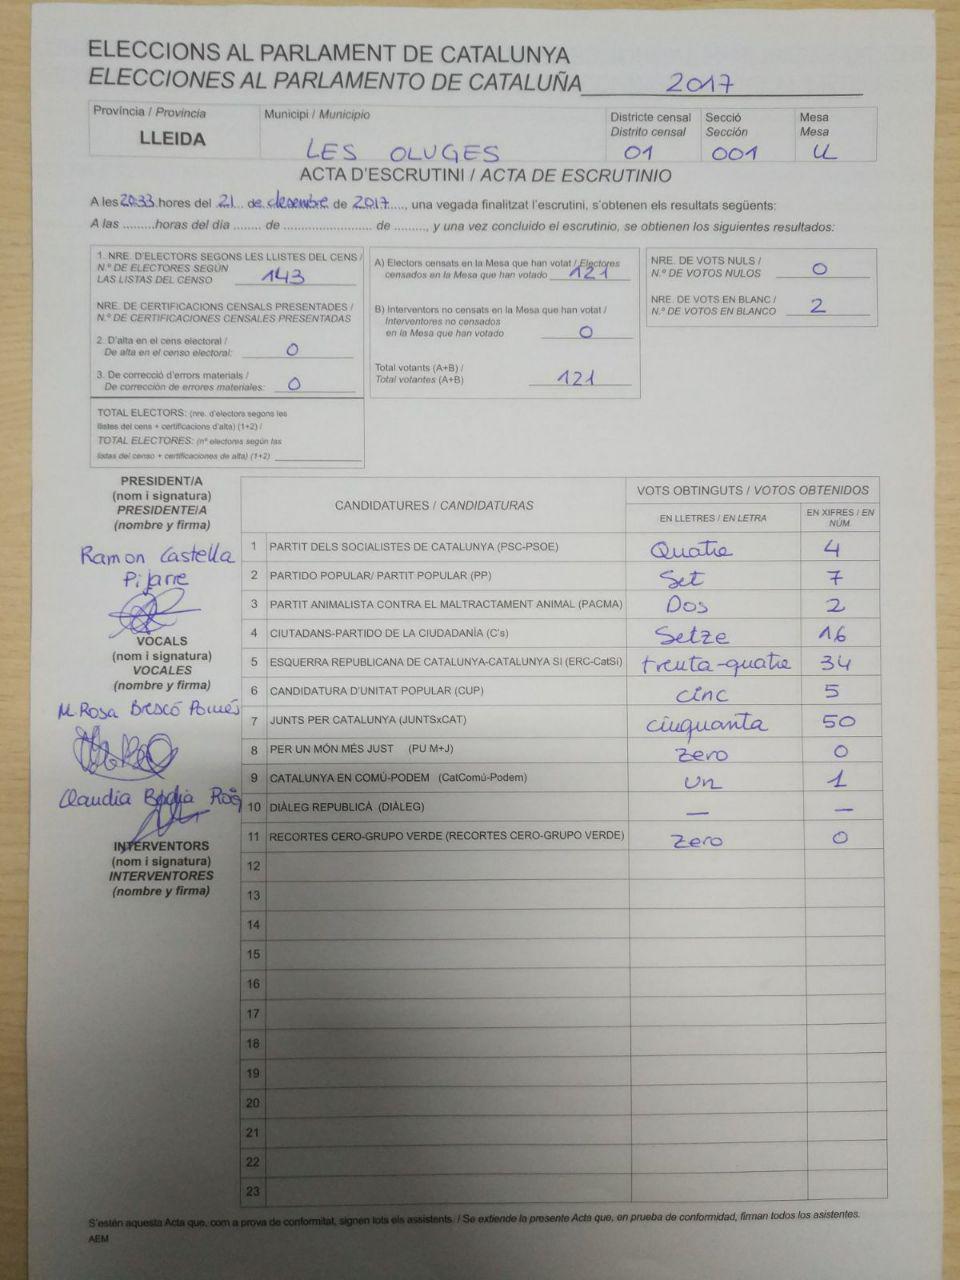 ELECCIONS AL PARLAMENT DE CATALUNYA
ELECCIONES AL PARLAMENTO DE CATALUÑA 2017
Província / Provincia
LLEIDA
Municipi / Municipio
LES OLUGES
Districte censal
Distrito censal
01
Secció
Sección
001
Mesa
Mesa
U
ACTA D'ESCRUTINI / ACTA DE ESCRUTINIO
A les 20:33 hores del 21 de desembre de 2017, una vegada finalitzat l'escrutini, s'obtenen els resultats següents:
A las .........horas del día ........ de ......................... de ........., y una vez concluido el escrutinio, se obtienen los siguientes resultados:
1. NRE. D'ELECTORS SEGONS LES LLISTES DEL CENS /
N.º DE ELECTORES SEGÚN
LAS LISTAS DEL CENSO 143
NRE. DE CERTIFICACIONS CENSALS PRESENTADES /
N.º DE CERTIFICACIONES CENSALES PRESENTADAS
2. D'alta en el cens electoral /
De alta en el censo electoral: 0
3. De correcció d'errors materials /
De corrección de errores materiales: 0
TOTAL ELECTORS: (nre. d'electors segons les
llistes del cens + certificacions d'alta) (1+2) /
TOTAL ELECTORES: (nº electores según las
listas del censo + certificaciones de alta) (1+2)
A) Electors censats en la Mesa que han votat / Electores
censados en la Mesa que han votado 121
B) Interventors no censats en la Mesa que han votat /
Interventores no censados
en la Mesa que han votado 0
Total votants (A+B) /
Total votantes (A+B) 121
NRE. DE VOTS NULS /
N.º DE VOTOS NULOS 0
NRE. DE VOTS EN BLANC /
N.º DE VOTOS EN BLANCO 2
PRESIDENT/A
(nom i signatura)
PRESIDENTE/A
(nombre y firma)
Ramon Castella
VOCALS
(nom i signatura)
VOCALES
(nombre y firma)
M. Rosa Brescó Pomés
Claudia Badia
INTERVENTORS
(nom i signatura)
INTERVENTORES
(nombre y firma)
CANDIDATURES / CANDIDATURAS
VOTS OBTINGUTS / VOTOS OBTENIDOS
EN LLETRES / EN LETRA
EN XIFRES / EN NÚM.
1 PARTIT DELS SOCIALISTES DE CATALUNYA (PSC-PSOE) Quatre 4
2 PARTIDO POPULAR/ PARTIT POPULAR (PP) Set 7
3 PARTIT ANIMALISTA CONTRA EL MALTRACTAMENT ANIMAL (PACMA) Dos 2
4 CIUTADANS-PARTIDO DE LA CIUDADANÍA (C's) Setze 16
5 ESQUERRA REPUBLICANA DE CATALUNYA-CATALUNYA SÍ (ERC-CatSí) trenta-quatre 34
6 CANDIDATURA D'UNITAT POPULAR (CUP) cinc 5
7 JUNTS PER CATALUNYA (JUNTSxCAT) cinquanta 50
8 PER UN MÓN MÉS JUST (PU M+J) Zero 0
9 CATALUNYA EN COMÚ-PODEM (CatComú-Podem) un 1
10 DIÀLEG REPUBLICÀ (DIÀLEG) — —
11 RECORTES CERO-GRUPO VERDE (RECORTES CERO-GRUPO VERDE) Zero 0
12
13
14
15
16
17
18
19
20
21
22
23
S'estén aquesta Acta que, com a prova de conformitat, signen tots els assistents. / Se extiende la presente Acta que, en prueba de conformidad, firman todos los asistentes.
AEM